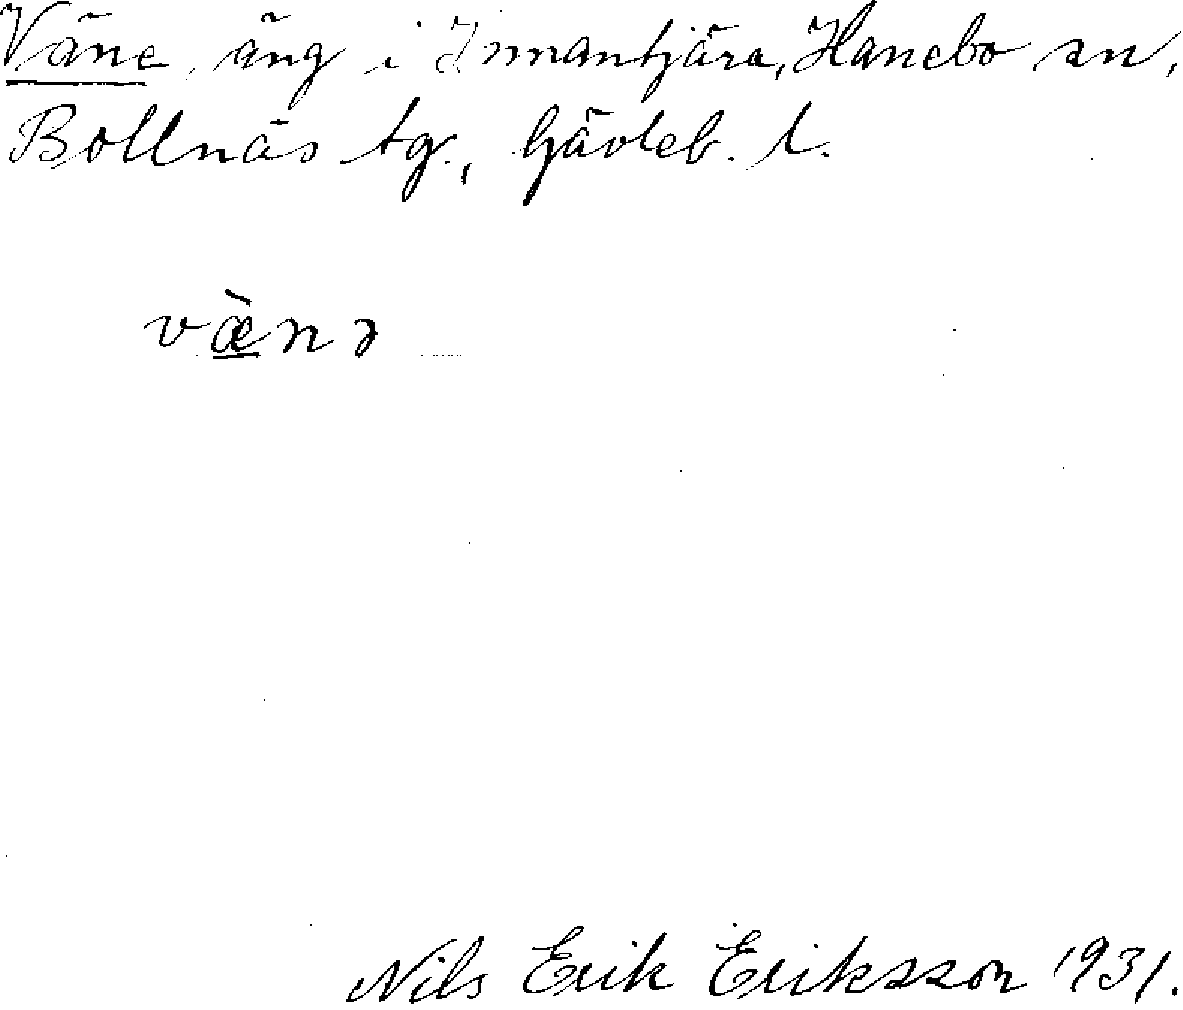 Väne, äng i Inmantjära, Hanebo sn,
Bollnäs tg., Gävleb. l.
væ̀nə
Nils Erik Eriksson 1931.